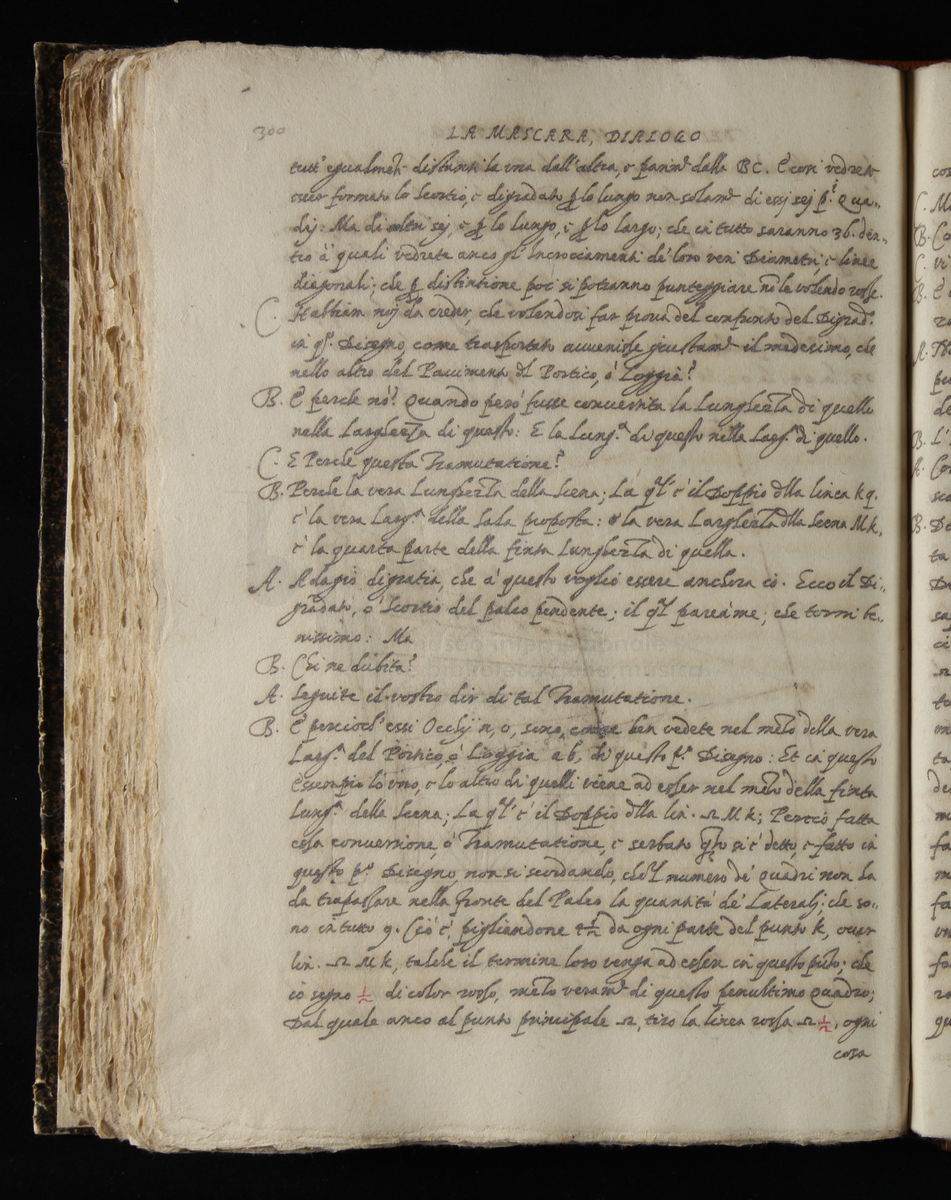 300
LA MASCARA, DIALOGO
tutt' egualmẽte distanti la una dall'altra, e parim.e dalla BC. E così vedrete
esser formato lo Scortio, e digradato p lo lungo non solam.e di essj sej p.i Qua=
drj: Ma di altri sej, e p lo lungo, e p lo largo; che in tutto saranno 36. den=
tro à quali vedrete anco gl' Incrociamenti de' loro veri Diametri, e linee
diagonali; che p distintione poi si potranno punteggiare nõ le volendo rosse.
C. Habbiam noj da creder, che volendosi far prova del congiunto del Digrad.o
in q.o Disegno, come trasportato avvenisse giustam.e il medesimo, che
nello altro del Pavimento del Portico, ò Loggia?
B. E perche nò? Quando però fusse convertita la Lunghezza di quello
nella Larghezza di questo: E la Lung.a di questo nella Larg.a di quello.
C. E Perche questa Tramutatione?
B. Perche la vera Lunghezza della Scena; La q.l è il Doppio dlla linea k q.
è la vera Larg.a della Sala proposta: e la vera Larghezza dlla Scena M k,
è la quarta parte della finta Lunghezza di quella.
A. Adagio digratia, che à questo voglio essere anchora io. Ecco il Di=
gradato, ò Scortio del palco pendente; il q.l pareàme, che tormi be=
nissimo: Ma
B. Chi ne dubita?
A. Seguite il vostro dir di tal Tramutatione.
B. E percioch' essi Occhij n, o, sono, come ben vedete nel mezo della vera
Larg.a del Portico, ò Loggia a b, di questo p.o Disegno: Et in questo
Essempio lo uno, e lo altro di quelli viene ad esser nel mezo della finta
Lung.a della Scena; La q.l è il Doppio dlla lin. Ω M k; Perciò fatta
essa conversione, ò Tramutatione, e serbato q.to si è detto, e fatto in
questo p.o Disegno, non si scordando, che'l numero de' Quadri non ha
da trapassare nella fronte del Palco la quantità de' Lateralj; che so=
no in tutto 9. Ciò è, pigliandone 4½ da ogni parte del punto k, over
lin. Ω M k, talche il termine loro venga ad essere in questo pũto; che
io segno ½ di color rosso, mezo veram.e di questo penultimo Quadro;
Dal quale anco al punto principale Ω, tiro la linea rossa Ω ½, ogni
cosa